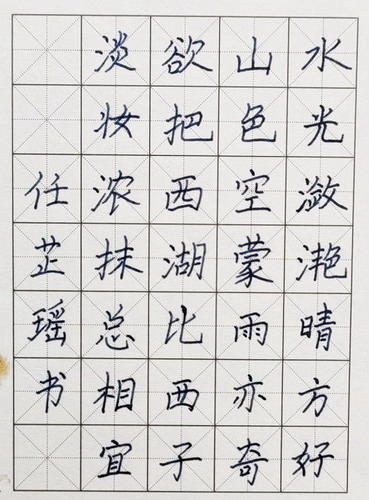 水光潋滟晴方好
山色空蒙雨亦奇
欲把西湖比西子
淡妆浓抹总相宜
任芷瑶书